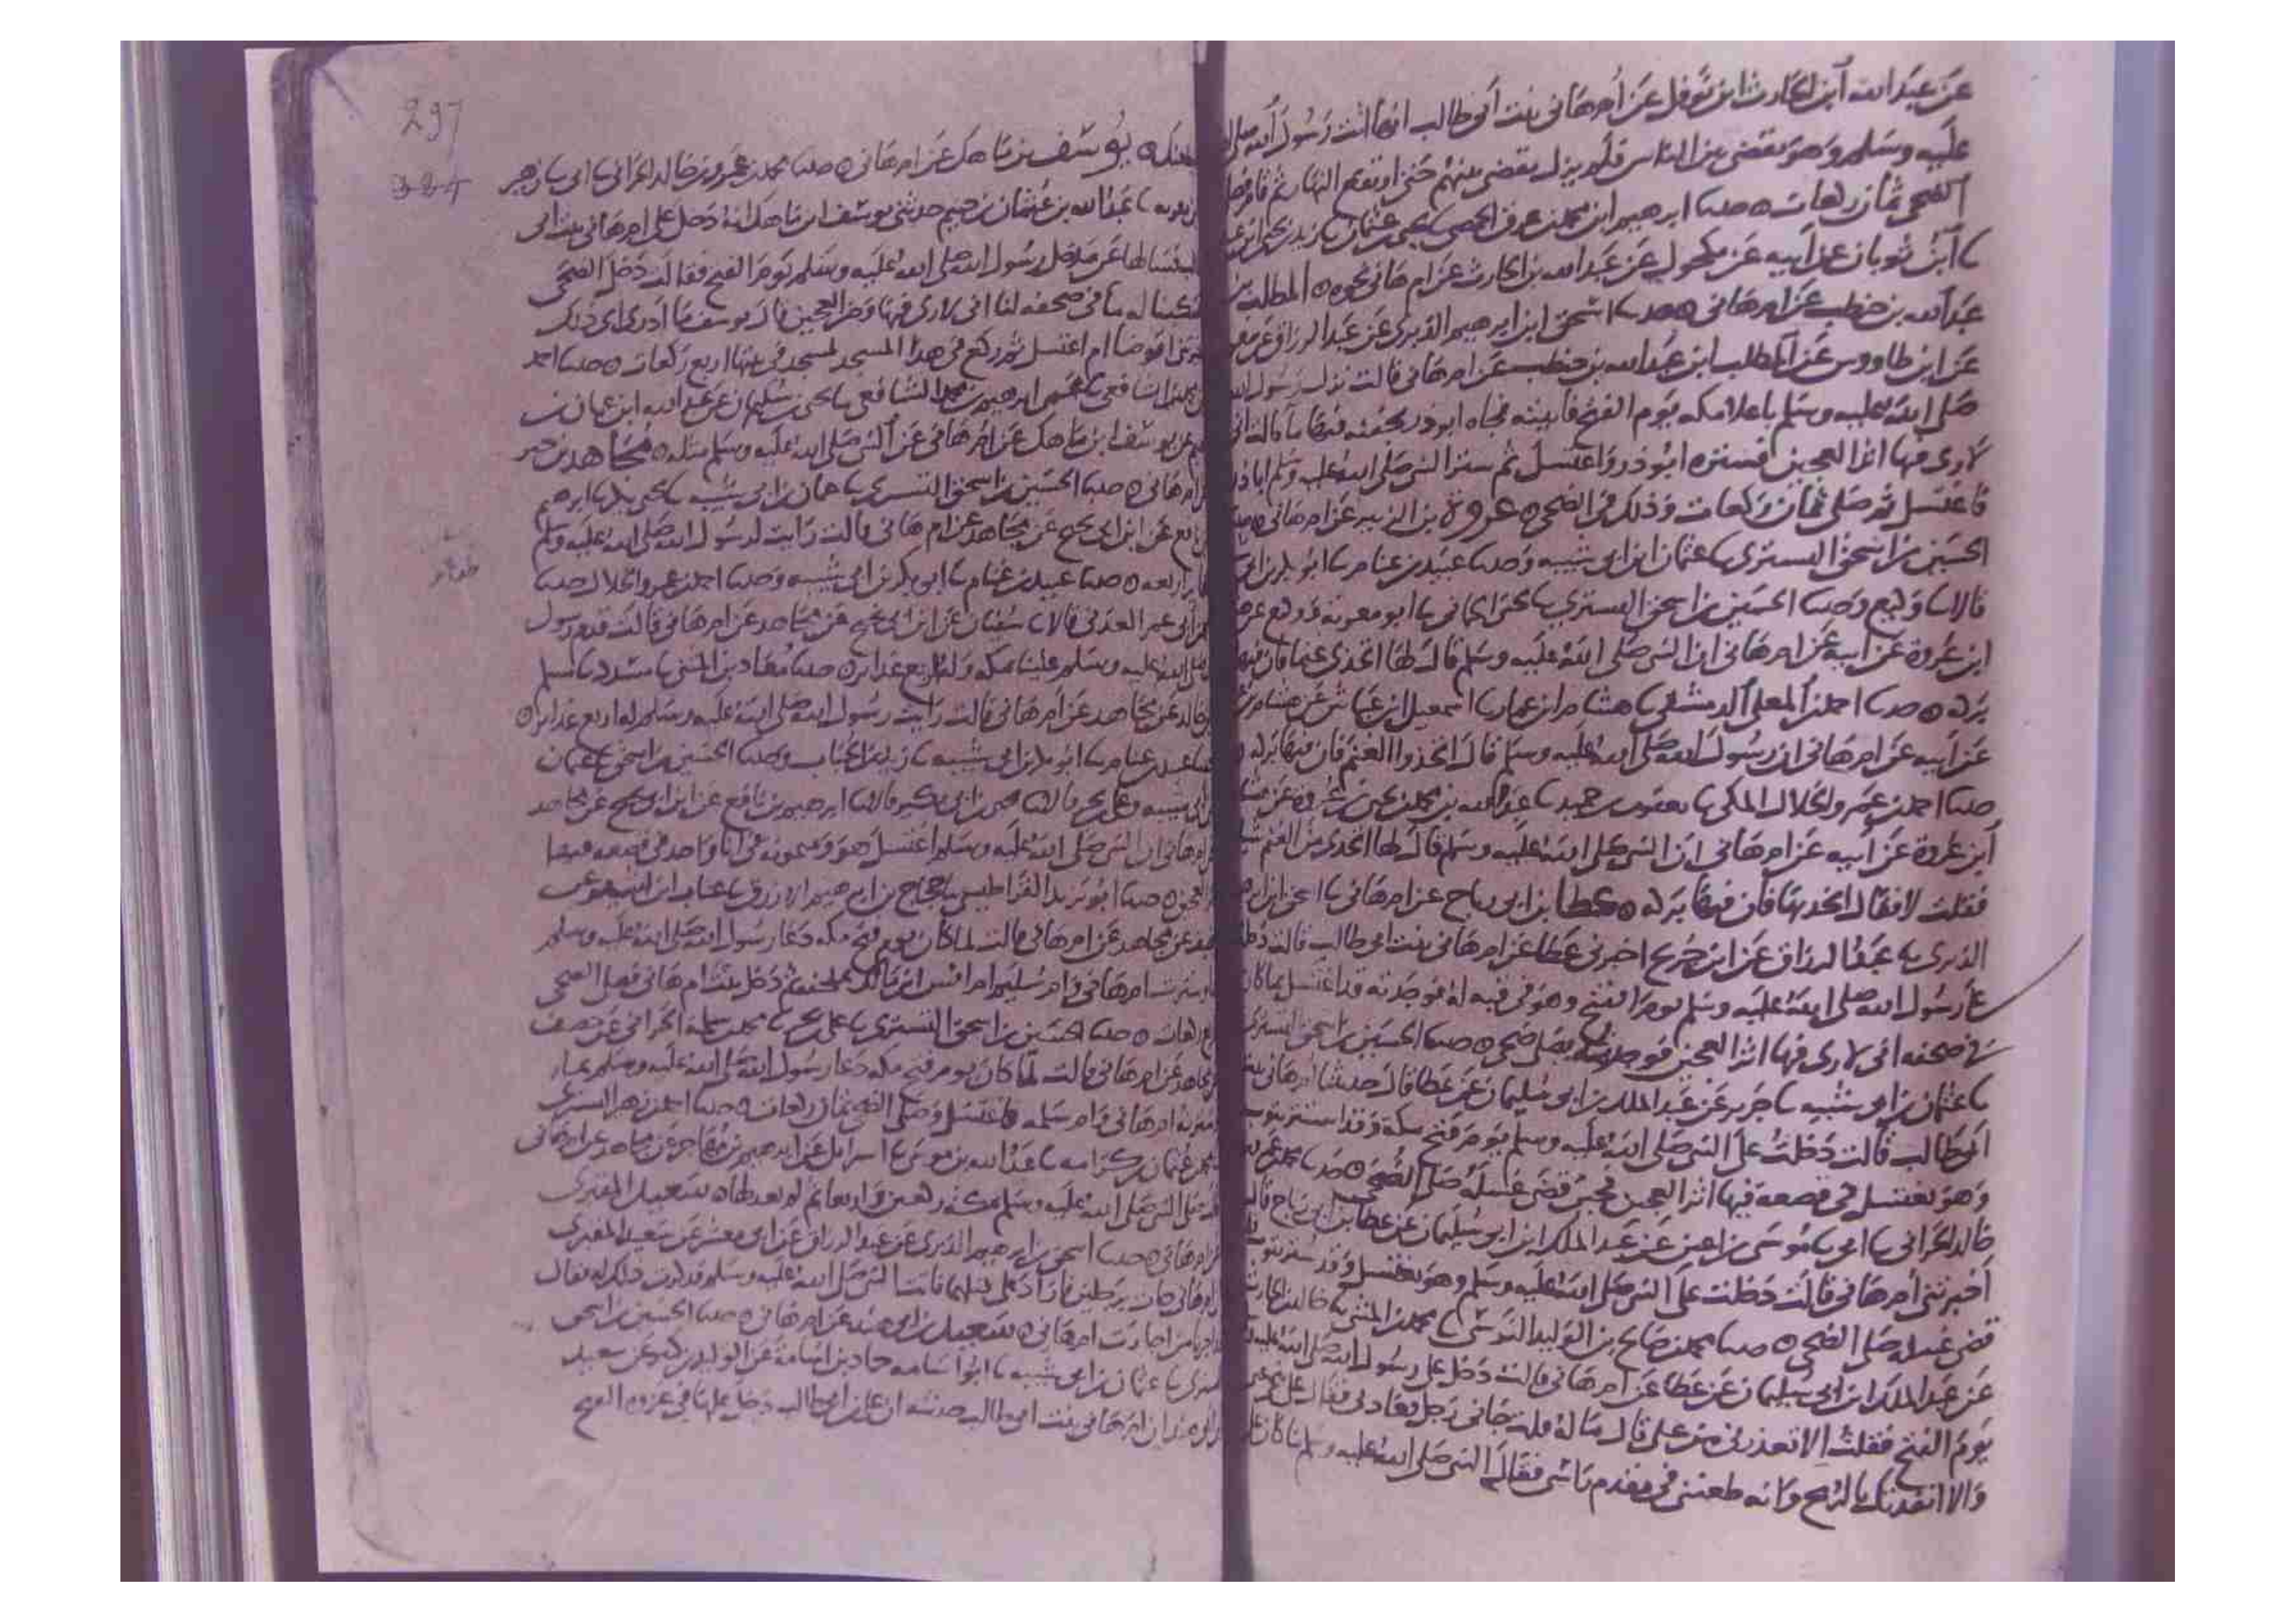 عن عبد الله ابن الحارث ابن نوفل عن أم هانى بنت أبى طالب انها اتت رسول الله صلى الله
عليه وسلم وهو يقضى بين الناس فلم يزل يقضى بينهم حتى ارتفع النهار ثم قام فصلى
الضحى ثمان ركعات ه حدثنا ابرهيم ابن محمد بن عرق الحمصى
ابن ثوبان عن أبيه عن مكحول عن عبد الله بن الحارث عن ام هانى نحوه ه المطلب بن
عبد الله بن حنطب عن ام هانى ه حدثنا اسحق ابن ابرهيم الدبرى عن عبد الرزاق عن معمر
عن ابن طاووس عن المطلب ابن عبد الله بن حنطب عن ام هانى قالت نزل رسول الله
صلى الله عليه وسلم باعلا مكه يوم الفتح فاتيته فجاه ابو ذر بجفنه فيها ما قالت انى
لارى فيها اثر العجين فستره ابو ذر واغتسل ثم ستر النبى صلى الله عليه وسلم اباذر
فاغتسل ثم صلى ثمان ركعات وذلك فى الضحى ه عروة بن الزبير عن ام هانى ه حدثنا
الحسين بن اسحق التسترى نا عثمان ابن ابى شيبه وحدثنا عبيد بن غنام نا ابو بكر بن ابى
قالا نا وكيع وحدثنا الحسين بن اسحق التسترى نا يحيى الحمانى نا ابو معويه ووكيع عن هشام
ابن عروة عن أبيه عن ام هانى ان النبى صلى الله عليه وسلم قال لها اتخذى غنما فان فيها
بركه ه حدثنا احمد بن المعلى الدمشقى نا هشام ابن عمار نا اسمعيل ابن عياش عن هشام بن
عن أبيه عن ام هانى ان رسول الله صلى الله عليه وسلم قال اتخذوا الغنم فان فيها بركه ه
حدثنا احمد بن عمرو الخلال المكى نا يعقوب بن حميد نا عبد الله بن محمد بن يحيى بن عروه عن هشام
ابن عروة عن أبيه عن ام هانى ان النبى صلى الله عليه وسلم قال لها اتخذى من الغنم
فقلت لا فقال اتخذيها فان فيها بركه ه عطا بن ابى رباح عن ام هانى نا اسحق ابن ابرهيم
الدبرى نا عبد الرزاق عن ابن جريج اخبرنى عطا عن ام هانى بنت ابى طالب قالت دخلت
على رسول الله صلى الله عليه وسلم يوم الفتح وهو فى قبه له فوجدته قد اغتسل بما كان
فى صحفه انى لارى فيها اثر العجين فوجدته يصلى ضحى ه حدثنا الحسين بن اسحق التسترى
نا عثمان بن ابى شيبه نا جرير عن عبد الملك بن ابى سليمان عن عطا قال حدثتنا ام هانى بنت
ابى طالب قالت دخلت على النبى صلى الله عليه وسلم يوم فتح مكة وقد استتر بثوب
وهو يغتسل فى قصعه فيها اثر العجين فحين قضى غسله صلى الضحى ه حدثنا محمد بن عمرو بن
خالد الحرانى نا ابى نا موسى بن اعين عن عبد الملك ابن ابى سليمان عن عطا بن ابى رباح قال
اخبرتنى ام هانى قالت دخلت على النبى صلى الله عليه وسلم وهو يغتسل وقد ستر بثوب
قضى غسله صلى الضحى ه حدثنا محمد بن صالح بن الوليد النرسى نا محمد بن المثنى نا خالد بن الحارث
عن عبد الملك ابن ابى سليمان عن عطا عن ام هانى قالت دخل على رسول الله صلى الله عليه
يوم الفتح فقلت الا تعذرنى من على قال ما له قلت جانى رجل
والا انفذتك بالرمح وانه طعننى فى مقدم راسى فقال النبى صلى الله عليه وسلم ما كان على
297
يوسف بن ماهك عن ام هانى ه حدثنا محمد بن عمرو بن خالد الحرانى نا ابى نا زهير
نا عبد الله بن عثمان بن خثيم حدثنى يوسف ابن ماهك انه دخل على ام هانى بنت ابى
عن مدخل رسول الله صلى الله عليه وسلم يوم الفتح فقالت دخل الضحى
فسكبنا له ما فى صحفه لنا انى لارى فيها وضر العجين قال يوسف ما ادرى اى ذلك
اتوضا ام اغتسل ثم ركع فى هذا المسجد لمسجد فى بيتها اربع ركعات ه حدثنا احمد
بن محمد الشافعى نا عمى ابرهيم بن محمد الشافعى نا يحيى بن سليمان عن عبد الله ابن عثمان بن
عن يوسف ابن ماهك عن ام هانى عن النبى صلى الله عليه وسلم مثله ه مجاهد بن جبر
عن ام هانى ه حدثنا الحسين بن اسحق التسترى نا عثمان بن ابى شيبه نا يحيى بن نا ابرهيم
بن نافع عن ابن ابى نجيح عن مجاهد عن ام هانى قالت رايت لرسول الله صلى الله عليه وسلم
ضفائر اربعه ه حدثنا عبيد بن غنام نا ابو بكر بن ابى شيبه وحدثنا احمد بن عمرو الخلال حدثنا
ابن أبى عمر العدنى قالا نا سفيان عن ابن ابى نجيح عن مجاهد عن ام هانى قالت قدم رسول
الله صلى الله عليه وسلم علينا مكه وله اربع غدائر ه حدثنا معاذ بن المثنى نا مسدد نا مسلم
بن خالد عن مجاهد عن ام هانى قالت رايت رسول الله صلى الله عليه وسلم له اربع غدائر ه
حدثنا عبيد بن غنام نا ابو بكر بن ابى شيبه نا زيد بن الحباب وحدثنا الحسين بن اسحق نا عثمان
بن ابى شيبه وعلى بن بحر قالا نا بن ابى بكير قالا نا ابرهيم بن نافع عن ابن ابى نجيح عن مجاهد
عن ام هانى ان النبى صلى الله عليه وسلم اغتسل هو وميمونه فى انا واحد فى قصعه فيها
العجين ه حدثنا ابو يزيد القراطيسى نا حجاج بن ابرهيم الازرق نا
عن مجاهد عن ام هانى قالت لما كان يوم فتح مكه دعا رسول الله صلى الله عليه وسلم
وسترته ام هانى وام سليم ام انس ابن مالك بملحفه ثم دخل بيت ام هانى فصلى الضحى
اربع ركعات ه حدثنا الحسين بن اسحق التسترى نا على بن بحر نا محمد بن سلمة الحرانى عن خصيف
عن مجاهد عن ام هانى قالت لما كان يوم فتح مكه دعا رسول الله صلى الله عليه وسلم بما
فسترته ام هانى وام سلمه فاغتسل وصلى الضحى ثمان ركعات ه حدثنا احمد بن زهير التسترى
نا محمد بن عثمان بن كرامه نا عبيد الله بن موسى نا اسرائيل عن ابرهيم بن مهاجر عن مجاهد عن ام هانى
صلى النبى صلى الله عليه وسلم بمكة ركعتين واربعا ثم لم يعد لها ه سعيد المقبرى
عن ام هانى ه حدثنا اسحق بن ابرهيم الدبرى عن عبد الرزاق عن ابى معشر عن سعيد المقبرى
فاراد على قتلهما فاتت النبى صلى الله عليه وسلم فذكرت ذلك له فقال
من اجارت ام هانى ه سعيد بن ابى هند عن ام هانى ه حدثنا الحسين بن اسحق
التسترى نا عثمان بن ابى شيبه نا ابو اسامه حماد بن اسامة عن الوليد بن كثير عن سعيد
بن ابى هند ان ام هانى بنت ابى طالب حدثته ان على بن ابى طالب دخل عليها فى غزوه الفتح